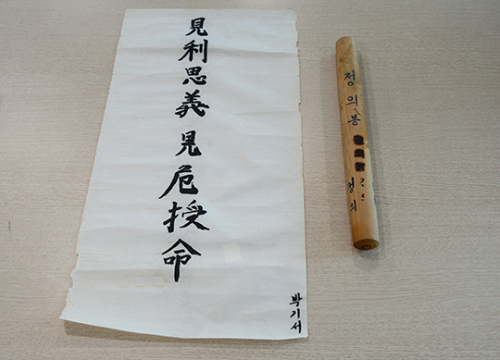 見利思義見危授命
박기서
정의봉
정의